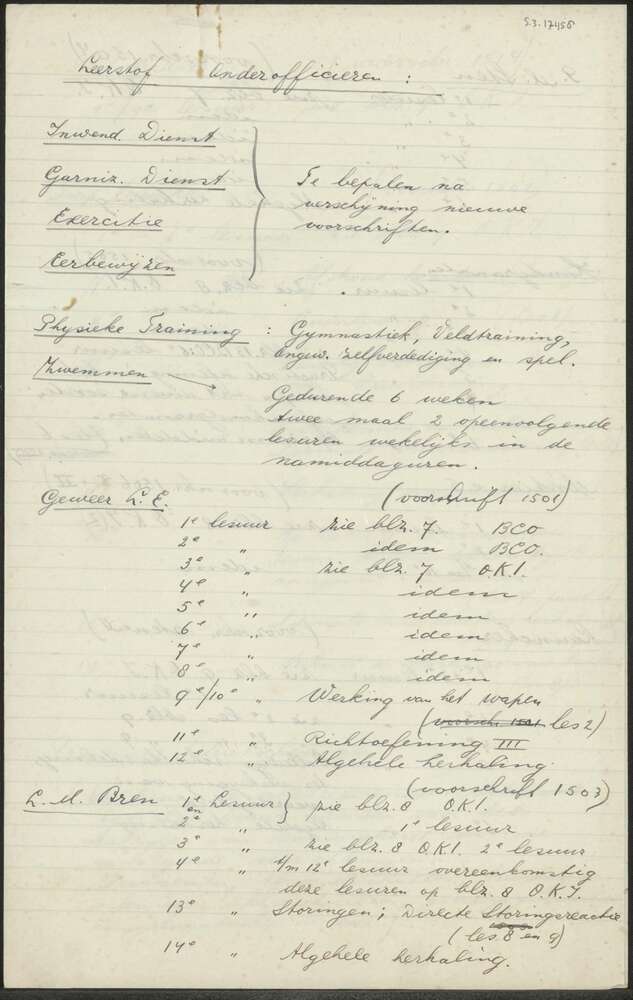 S.3. 17458
Leerstof Onderofficieren :
Inwend. Dienst
Garniz. Dienst
Exercitie
Eerbewijzen
Te bepalen na
verschijning nieuwe
voorschriften.
Physieke Training : Gymnastiek, Veldtraining,
ongew. zelfverdediging en spel.
Zwemmen
Gedurende 6 weken
twee maal 2 opeenvolgende
lesuren wekelijks in de
namiddaguren.
Geweer L.E. (voorschrift 1501)
1e lesuur zie blz. 7. BCO
2e " idem BCO.
3e " zie blz. 7 O.K.I.
4e " idem
5e " idem
6e " idem
7e " idem
8e " idem
9e/10e " Werking van het wapen
(voorschr. 1501 les 2)
11e " Richtoefening III
12e " Algehele herhaling.
(voorschrift 1503)
L. M. Bren 1e en Lesuur } zie blz. 8 O.K.I.
2e " 1e lesuur
3e " zie blz. 8 O.K.I. 2e lesuur
4e " t/m 12e lesuur overeenkomstig
deze lesuren op blz. 8 O.K.I.
13e " Storingen; Directe Storingsreactie
(les 8 en 9)
14e " Algehele herhaling.